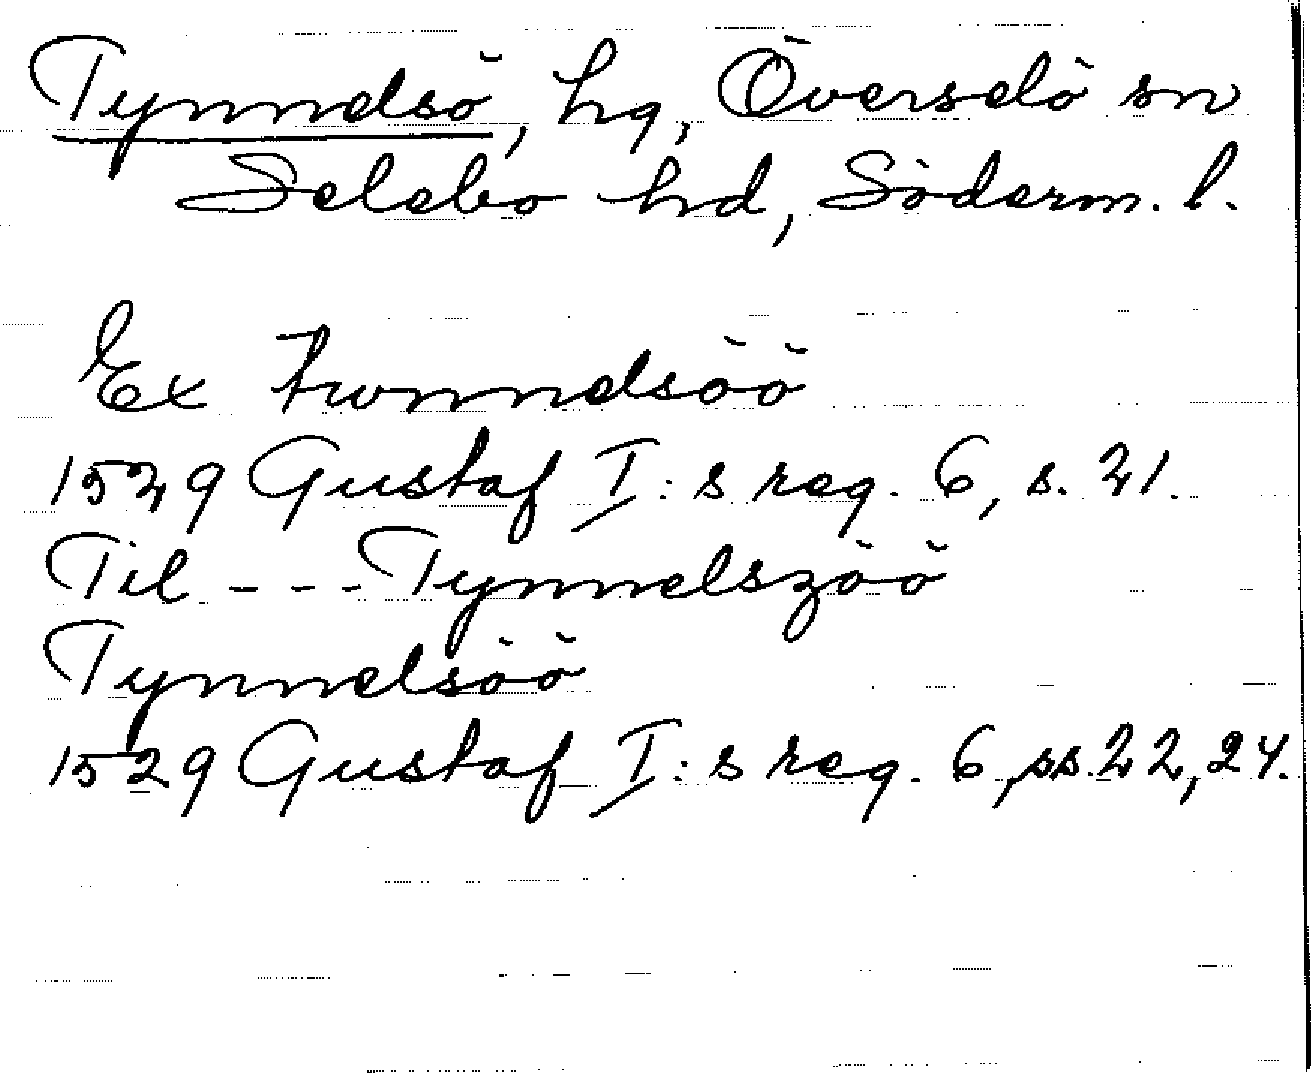 Tynnelsö, hg, Överselö sn
Selebo hd, Söderm. l.
Ex twnnelsöö
1529 Gustaf I:s reg. 6, s. 21.
Til --- Tynnelszöö
Tynnelsöö
1529 Gustaf I:s reg. 6, ss. 22, 24.